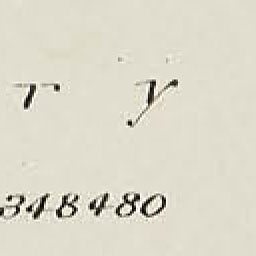 r y
348480